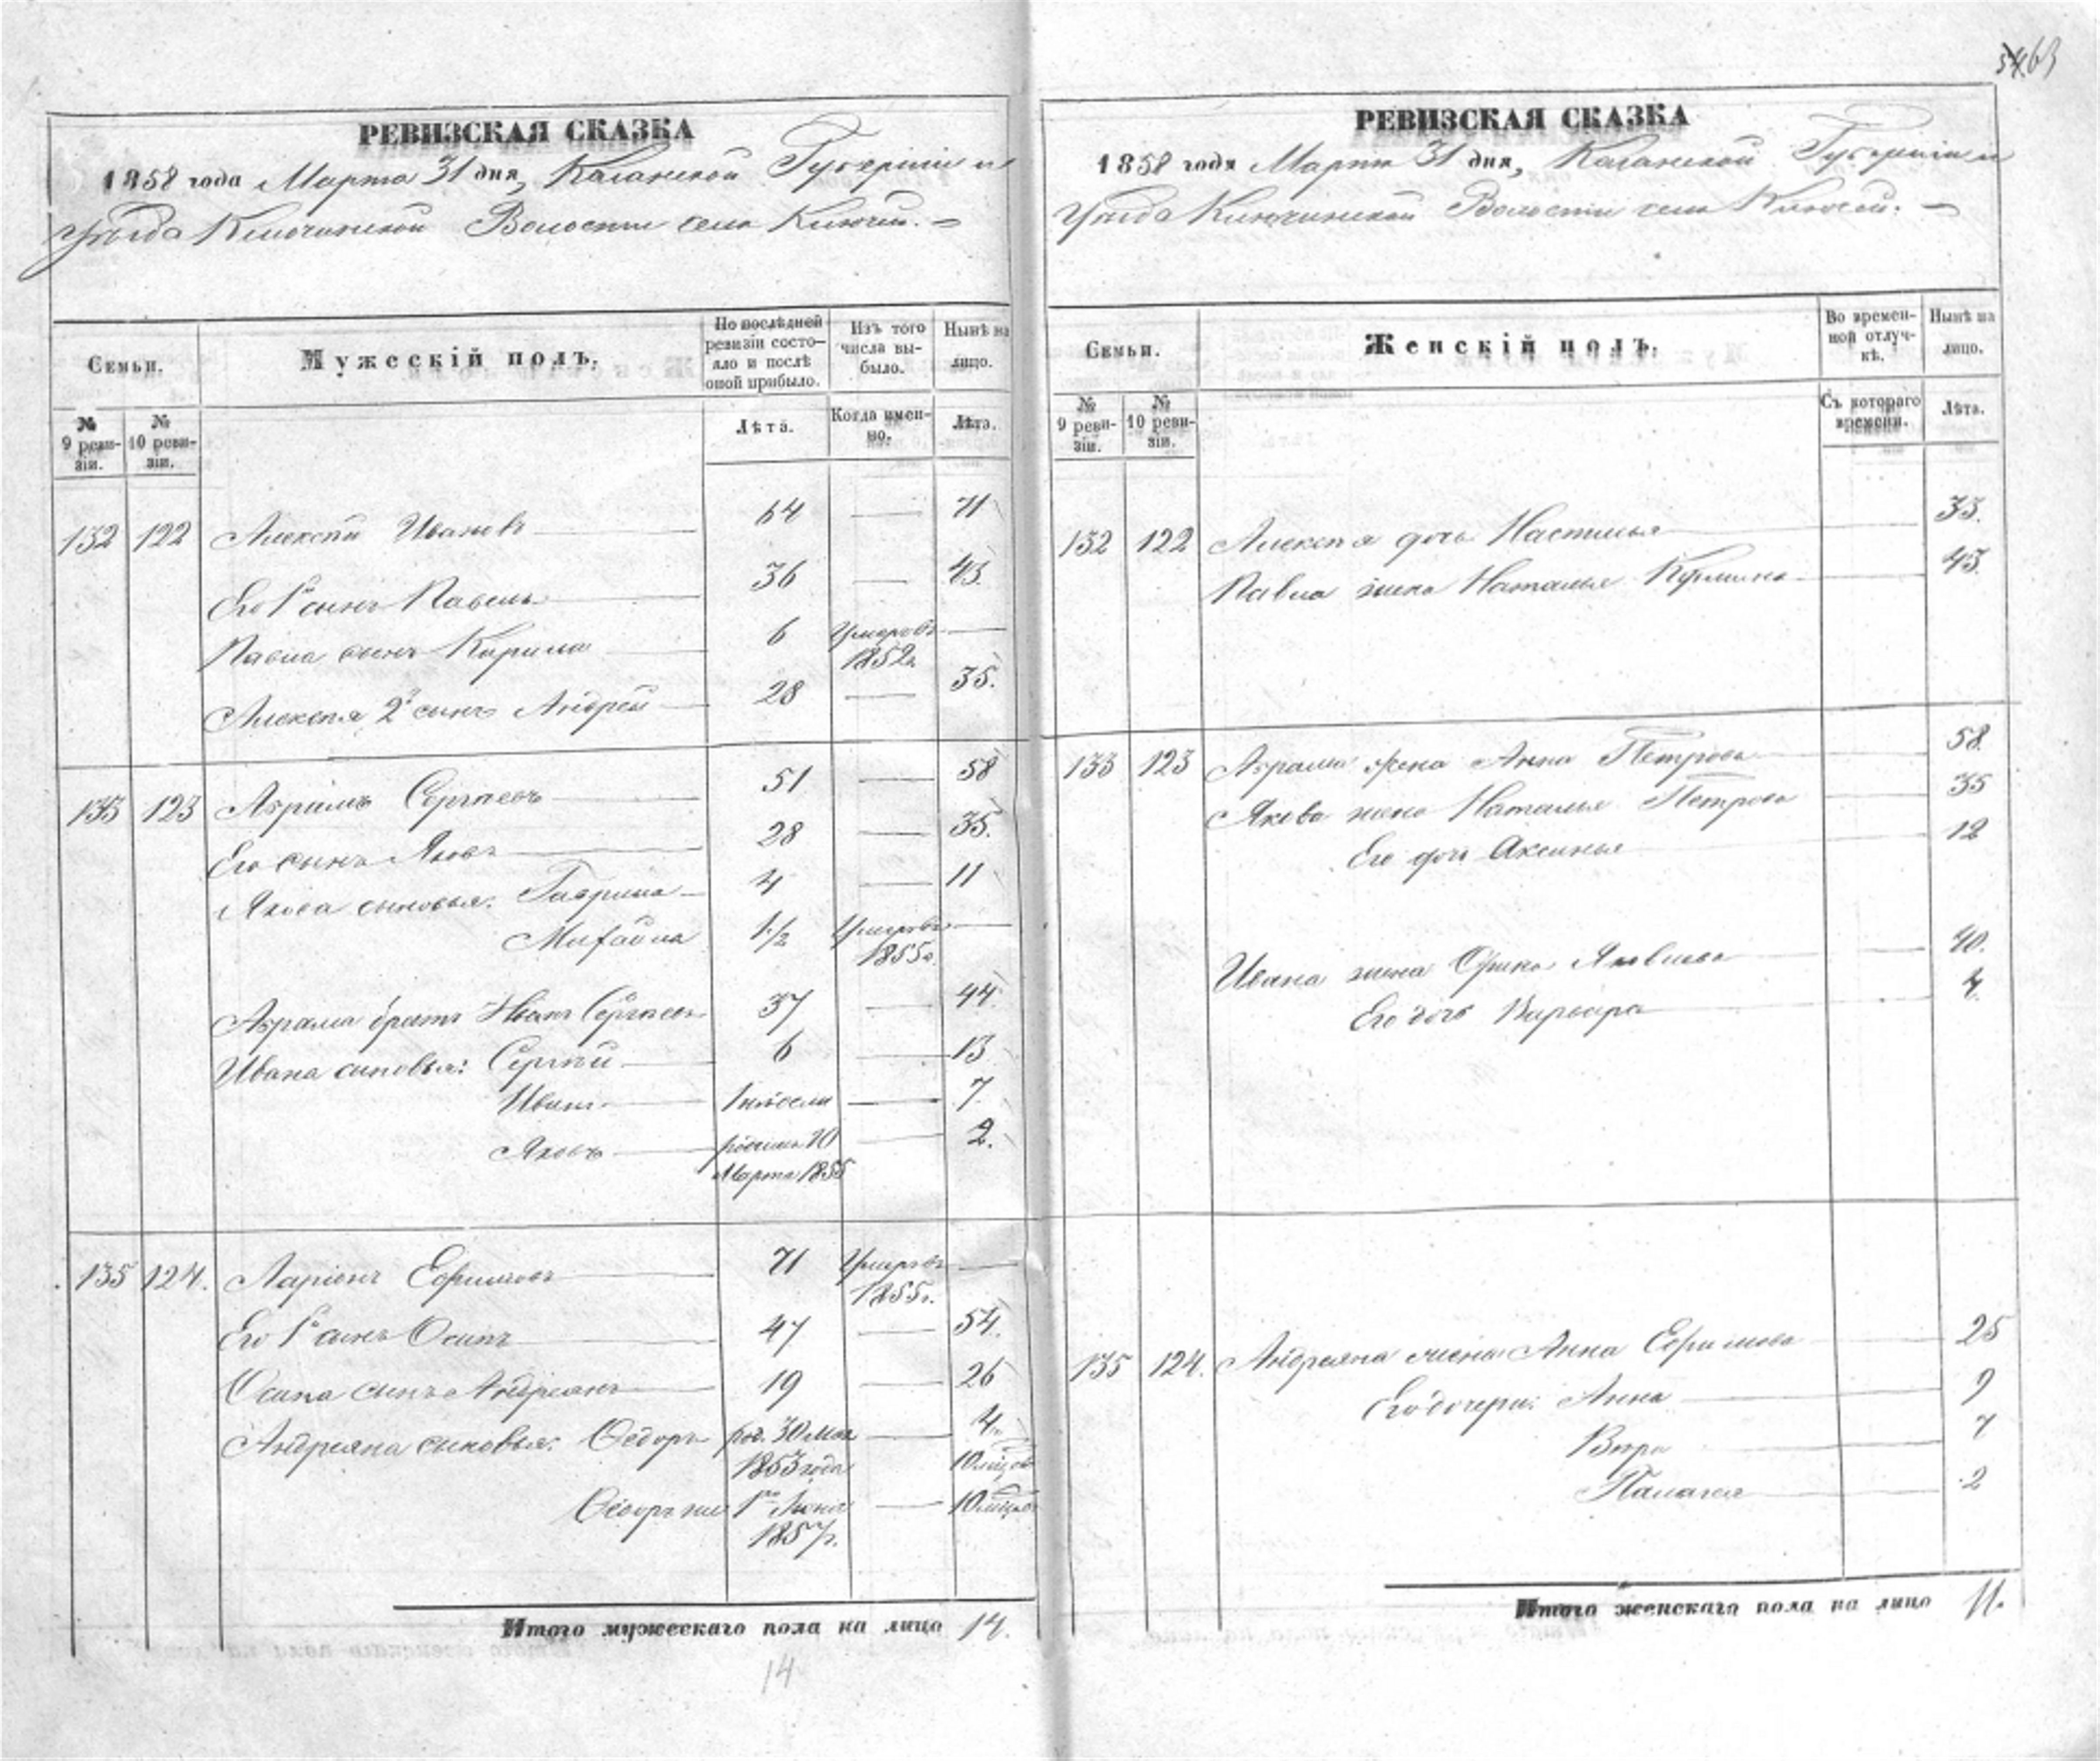 54 63
РЕВИЗСКАЯ СКАЗКА
1858 года Марта 31 дня, Казанской Губерніи и
Уѣзда Ключинской Волости села Ключей. =
Семьи.
Мужескій полъ.
По послѣдней ревизіи состояло и послѣ оной прибыло.
Изъ того числа выбыло.
Нынѣ на лицо.
№ 9 ревизіи.
№ 10 ревизіи.
Лѣта.
Когда именно.
Лѣта.
132 122 Алексѣй Ивановъ 64 — 71
Его 1й сынъ Павелъ 36 — 43.
Павла сынъ Кирила 6 Умеръ въ 1852г. —
Алексѣя 2й сынъ Андрей 28 — 35.
133 123 Абрамъ Сергѣевъ 51 — 58
Его сынъ Яковъ 28 — 35.
Якова сыновья: Гаврила 4 — 11
Михайла 1/2 Умеръ въ 1855г. —
Абрама братъ Иванъ Сергѣевъ 37 — 44.
Ивана сыновья: Сергѣй 6 — 13
Иванъ 1 недѣли — 7.
Яковъ родился 10 Марта 1855 — 2.
135 124. Ларіонъ Ефимовъ 71 Умеръ въ 1855г. —
Его 1й сынъ Осипъ 47 — 54.
Осипа сынъ Андреянъ 19 — 26
Андреяна сыновья: Ѳедоръ род. 30 Мая 1853 года — 4. 10 мѣсяцовъ
Ѳедоръ же 1го Іюня 1857г. — 10 мѣсяцовъ
Итого мужескаго пола на лицо 14.
14
РЕВИЗСКАЯ СКАЗКА
1858 года Марта 31 дня, Казанской Губерніи и
Уѣзда Ключинской Волости села Ключей. =
Семьи.
Женскій полъ.
Во временной отлучкѣ.
Нынѣ на лицо.
№ 9 ревизіи.
№ 10 ревизіи.
Съ котораго времени.
Лѣта.
132 122 Алексѣя дочь Настасья 33.
Павла жена Наталья 43.
133 123 Абрама жена Анна Петрова 58.
Якова жена Наталья Петрова 35
Его дочь Аксинья 12
Ивана жена Яковлева 40.
Его дочь Варвара 4.
135 124. Андреяна жена Анна Ефимова 25
Его дочери: Анна 9
Вѣра 7
Палагея 2
Итого женскаго пола на лицо 11.